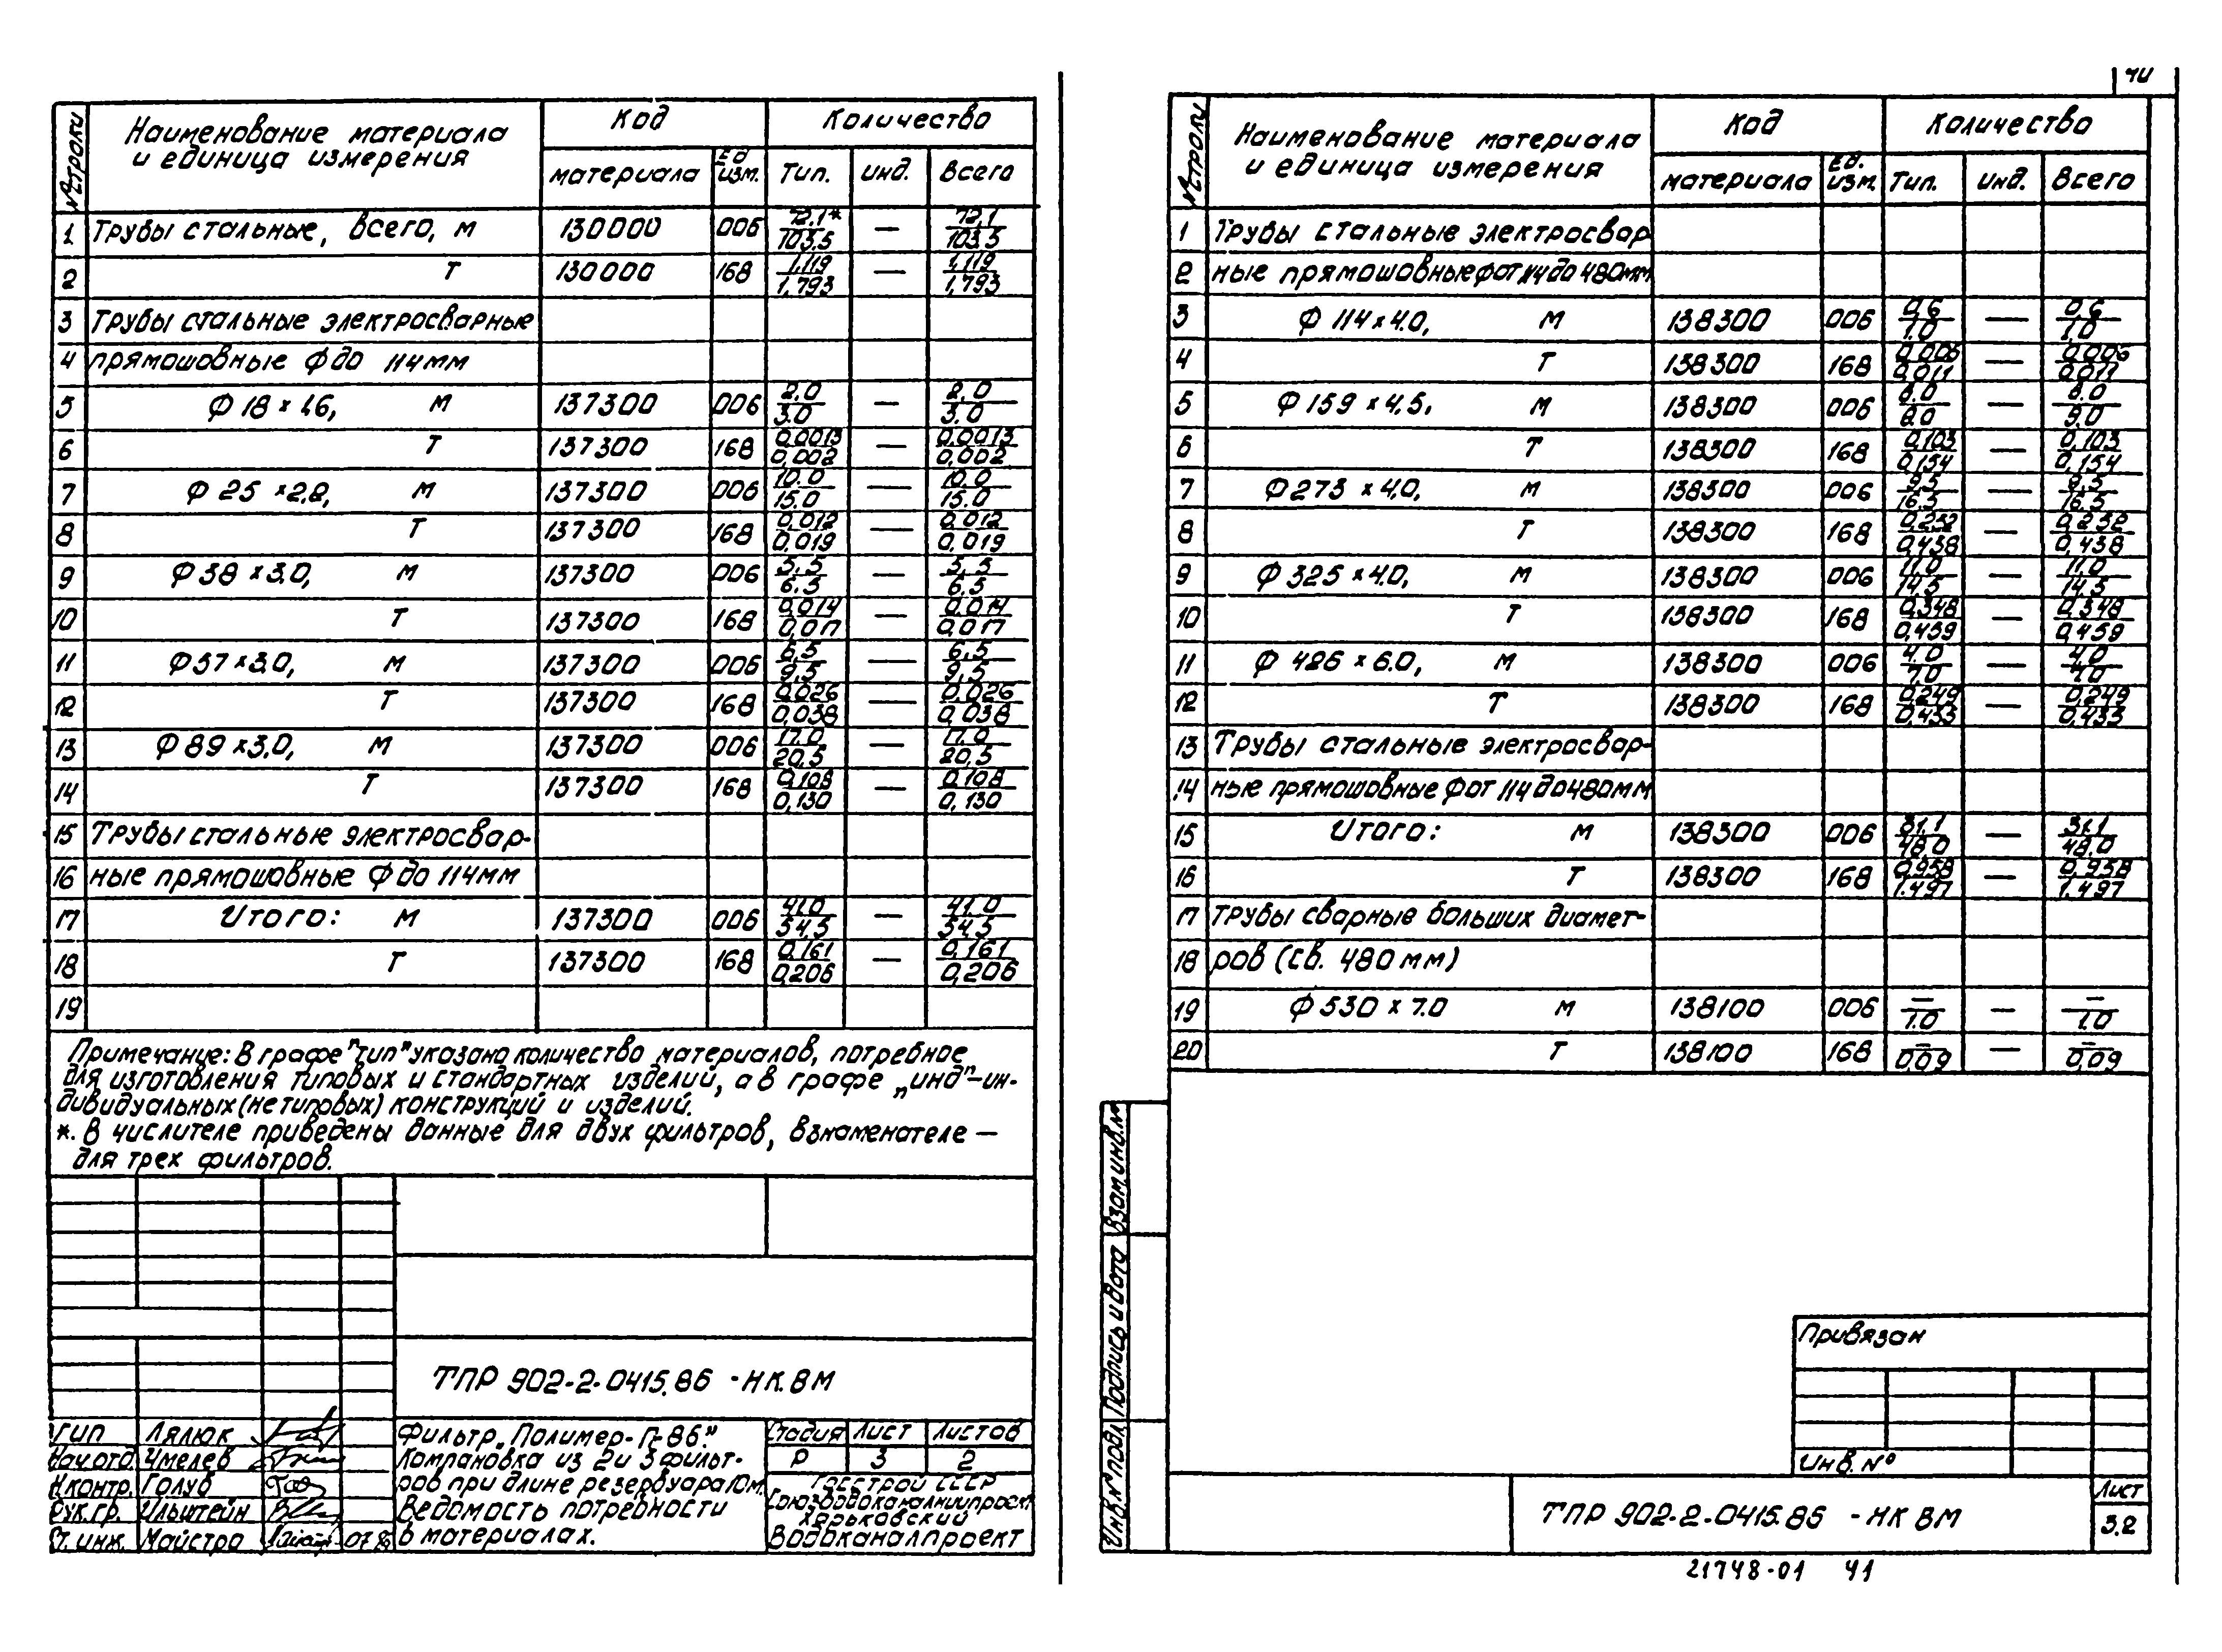 40
№ строки | Наименование материала и единица измерения | Код материала | Код Ед. изм. | Количество Тип. | Количество Инд. | Количество Всего
1 | Трубы стальные, всего, м | 130000 | 006 | 72,1*/103,5 | — | 72,1/103,5
2 | Т | 130000 | 168 | 1,119/1,793 | — | 1,119/1,793
3 | Трубы стальные электросварные
4 | прямошовные Ф до 114мм
5 | Ф 18 × 1.6, м | 137300 | 006 | 2,0/3.0 | — | 2,0/3.0
6 | Т | 137300 | 168 | 0,0013/0,002 | — | 0,0013/0,002
7 | Ф 25 × 2.8, м | 137300 | 006 | 10.0/15.0 | — | 10.0/15.0
8 | Т | 137300 | 168 | 0,012/0,019 | — | 0,012/0,019
9 | Ф 38 × 3.0, м | 137300 | 006 | 5,5/6.5 | — | 5,5/6.5
10 | Т | 137300 | 168 | 0,014/0,017 | — | 0,014/0,017
11 | Ф 57 × 3.0, м | 137300 | 006 | 6,5/9,5 | — | 6,5/9,5
12 | Т | 137300 | 168 | 0,026/0,038 | — | 0,026/0,038
13 | Ф 89 × 3.0, м | 137300 | 006 | 17.0/20,5 | — | 17.0/20,5
14 | Т | 137300 | 168 | 0,108/0,130 | — | 0,108/0,130
15 | Трубы стальные электросвар-
16 | ные прямошовные Ф до 114мм
17 | Итого: м | 137300 | 006 | 41.0/54,5 | — | 41.0/54,5
18 | Т | 137300 | 168 | 0,161/0,206 | — | 0,161/0,206
19
Примечание: В графе "тип" указано количество материалов, потребное
для изготовления типовых и стандартных изделий, а в графе „инд"-ин-
дивидуальных (нетиповых) конструкций и изделий.
*. В числителе приведены данные для двух фильтров, в знаменателе —
для трех фильтров.
ТПР 902-2-0415.86 -НК.ВМ
ГИП Лялюк
Нач.отд. Чмелев
Н.контр. Голуб
Рук.гр. Ильштейн
Ст.инж. Майстро 07.86
Фильтр „Полимер-П-86."
Компановка из 2 и 3 фильт-
ров при длине резервуара 10м.
Ведомость потребности
в материалах.
Стадия Лист Листов
Р 3 2
Госстрой СССР
Союзводоканалниипроект
Харьковский
Водоканалпроект
№ строки | Наименование материала и единица измерения | Код материала | Код Ед. изм. | Количество Тип. | Количество Инд. | Количество Всего
1 | Трубы стальные электросвар-
2 | ные прямошовные Ф от 114 до 480мм
3 | Ф 114 × 4.0, м | 138300 | 006 | 0,6/1.0 | — | 0,6/1,0
4 | Т | 138300 | 168 | 0,006/0,011 | — | 0,006/0,011
5 | Ф 159 × 4,5, м | 138300 | 006 | 6.0/9.0 | — | 6.0/9.0
6 | Т | 138300 | 168 | 0,103/0,154 | — | 0,103/0,154
7 | Ф 273 × 4,0, м | 138300 | 006 | 9,5/16,5 | — | 9,5/16,5
8 | Т | 138300 | 168 | 0,252/0,438 | — | 0,252/0,438
9 | Ф 325 × 4.0, м | 138300 | 006 | 11,0/14,5 | — | 11,0/14,5
10 | Т | 138300 | 168 | 0,348/0,459 | — | 0,348/0,459
11 | Ф 426 × 6.0, м | 138300 | 006 | 4.0/7,0 | — | 4,0/7.0
12 | Т | 138300 | 168 | 0,249/0,433 | — | 0,249/0,433
13 | Трубы стальные электросвар-
14 | ные прямошовные Ф от 114 до 480мм
15 | Итого: м | 138300 | 006 | 31,1/48,0 | — | 31,1/48.0
16 | Т | 138300 | 168 | 0,958/1.497 | — | 0,958/1,497
17 | Трубы сварные больших диамет-
18 | ров (св. 480 мм)
19 | Ф 530 × 7.0 м | 138100 | 006 | —/1.0 | — | —/1.0
20 | Т | 138100 | 168 | —/0,09 | — | —/0,09
Взам.инв.№
Подпись и дата
Инв.№ подл.
Привязан
Инв.№
ТПР 902-2-0415.86 -НК ВМ
Лист
3.2
21748-01 41